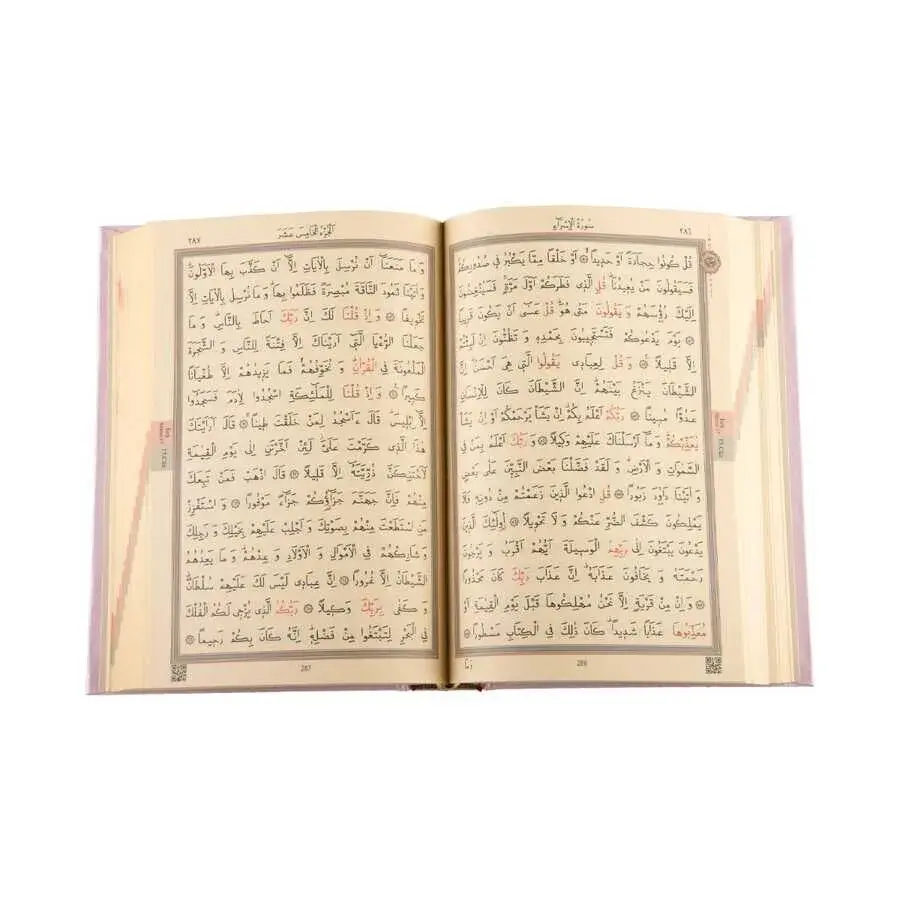 سورة الإسراء
٢٨٦
قُلْ كُونُوا حِجَارَةً اَوْ حَدٖيداً ۝ اَوْ خَلْقاً مِمَّا يَكْبُرُ فٖي صُدُورِكُمْ
فَسَيَقُولُونَ مَنْ يُعٖيدُنَا قُلِ الَّذٖي فَطَرَكُمْ اَوَّلَ مَرَّةٍ فَسَيُنْغِضُونَ
اِلَيْكَ رُؤُسَهُمْ وَ يَقُولُونَ مَتٰى هُوَ قُلْ عَسٰٓى اَنْ يَكُونَ قَرٖيباً
۝ يَوْمَ يَدْعُوكُمْ فَتَسْتَجٖيبُونَ بِحَمْدِهٖ وَ تَظُنُّونَ اِنْ لَبِثْتُمْ
اِلَّا قَلٖيلاً ۝ وَ قُلْ لِعِبَادٖي يَقُولُوا الَّتٖي هِيَ اَحْسَنُ اِنَّ
الشَّيْطَانَ يَنْزَغُ بَيْنَهُمْ اِنَّ الشَّيْطَانَ كَانَ لِلْاِنْسَانِ
عَدُوًّا مُبٖيناً ۝ رَبُّكُمْ اَعْلَمُ بِكُمْ اِنْ يَشَأْ يَرْحَمْكُمْ اَوْ اِنْ يَشَأْ
يُعَذِّبْكُمْ وَ مَٓا اَرْسَلْنَاكَ عَلَيْهِمْ وَكٖيلاً ۝ وَ رَبُّكَ اَعْلَمُ بِمَنْ فِي
السَّمٰوَاتِ وَ الْاَرْضِ وَ لَقَدْ فَضَّلْنَا بَعْضَ النَّبِيّٖنَ عَلٰى بَعْضٍ
وَ اٰتَيْنَا دَاوُدَ زَبُوراً ۝ قُلِ ادْعُوا الَّذٖينَ زَعَمْتُمْ مِنْ دُونِهٖ فَلَا
يَمْلِكُونَ كَشْفَ الضُّرِّ عَنْكُمْ وَ لَا تَحْوٖيلاً ۝ اُولٰٓئِكَ الَّذٖينَ
يَدْعُونَ يَبْتَغُونَ اِلٰى رَبِّهِمُ الْوَسٖيلَةَ اَيُّهُمْ اَقْرَبُ وَ يَرْجُونَ
رَحْمَتَهُ وَ يَخَافُونَ عَذَابَهُ اِنَّ عَذَابَ رَبِّكَ كَانَ مَحْذُوراً
۝ وَ اِنْ مِنْ قَرْيَةٍ اِلَّا نَحْنُ مُهْلِكُوهَا قَبْلَ يَوْمِ الْقِيٰمَةِ اَوْ
مُعَذِّبُوهَا عَذَاباً شَدٖيداً كَانَ ذٰلِكَ فِي الْكِتَابِ مَسْطُوراً ۝
وَمَا
286
الجزء الخامس عشر
٢٨٧
وَ مَا مَنَعَنَٓا اَنْ نُرْسِلَ بِالْاٰيَاتِ اِلَّٓا اَنْ كَذَّبَ بِهَا الْاَوَّلُونَ
وَ اٰتَيْنَا ثَمُودَ النَّاقَةَ مُبْصِرَةً فَظَلَمُوا بِهَا وَ مَا نُرْسِلُ بِالْاٰيَاتِ اِلَّا
تَخْوٖيفاً ۝ وَ اِذْ قُلْنَا لَكَ اِنَّ رَبَّكَ اَحَاطَ بِالنَّاسِ وَ مَا
جَعَلْنَا الرُّءْيَا الَّتٖٓي اَرَيْنَاكَ اِلَّا فِتْنَةً لِلنَّاسِ وَ الشَّجَرَةَ
الْمَلْعُونَةَ فِي الْقُرْاٰنِ وَ نُخَوِّفُهُمْ فَمَا يَزٖيدُهُمْ اِلَّا طُغْيَاناً
كَبٖيراً ۝ وَ اِذْ قُلْنَا لِلْمَلٰٓئِكَةِ اسْجُدُوا لِاٰدَمَ فَسَجَدُٓوا
اِلَّٓا اِبْلٖيسَ قَالَ ءَاَسْجُدُ لِمَنْ خَلَقْتَ طٖيناً ۝ قَالَ اَرَاَيْتَكَ
هٰذَا الَّذٖي كَرَّمْتَ عَلَيَّ لَئِنْ اَخَّرْتَنِ اِلٰى يَوْمِ الْقِيٰمَةِ
لَاَحْتَنِكَنَّ ذُرِّيَّتَهُٓ اِلَّا قَلٖيلاً ۝ قَالَ اذْهَبْ فَمَنْ تَبِعَكَ
مِنْهُمْ فَاِنَّ جَهَنَّمَ جَزَٓاؤُكُمْ جَزَٓاءً مَوْفُوراً ۝ وَ اسْتَفْزِزْ
مَنِ اسْتَطَعْتَ مِنْهُمْ بِصَوْتِكَ وَ اَجْلِبْ عَلَيْهِمْ بِخَيْلِكَ وَ رَجِلِكَ
وَ شَارِكْهُمْ فِي الْاَمْوَالِ وَ الْاَوْلَادِ وَ عِدْهُمْ وَ مَا يَعِدُهُمُ
الشَّيْطَانُ اِلَّا غُرُوراً ۝ اِنَّ عِبَادٖي لَيْسَ لَكَ عَلَيْهِمْ سُلْطَانٌ
وَ كَفٰى بِرَبِّكَ وَكٖيلاً ۝ رَبُّكُمُ الَّذٖي يُزْجٖي لَكُمُ الْفُلْكَ
فِي الْبَحْرِ لِتَبْتَغُوا مِنْ فَضْلِهٖ اِنَّهُ كَانَ بِكُمْ رَحٖيماً ۝
287